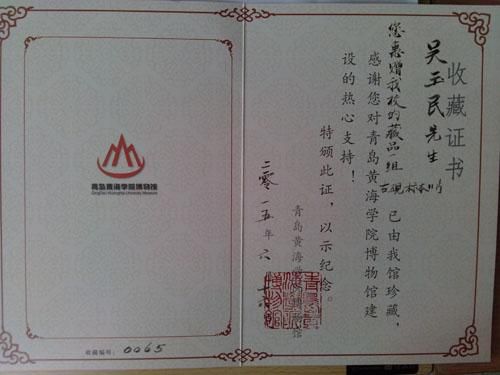 收藏证书
吴玉民先生
您惠赠我校的藏品一组 已由我馆珍藏，
感谢您对青岛黄海学院博物馆建
设的热心支持！
特颁此证，以示纪念。
青岛黄海学院博物馆
二零一五年六
青岛黄海学院博物馆
QingDao HuangHai University Museum
收藏编号：0065